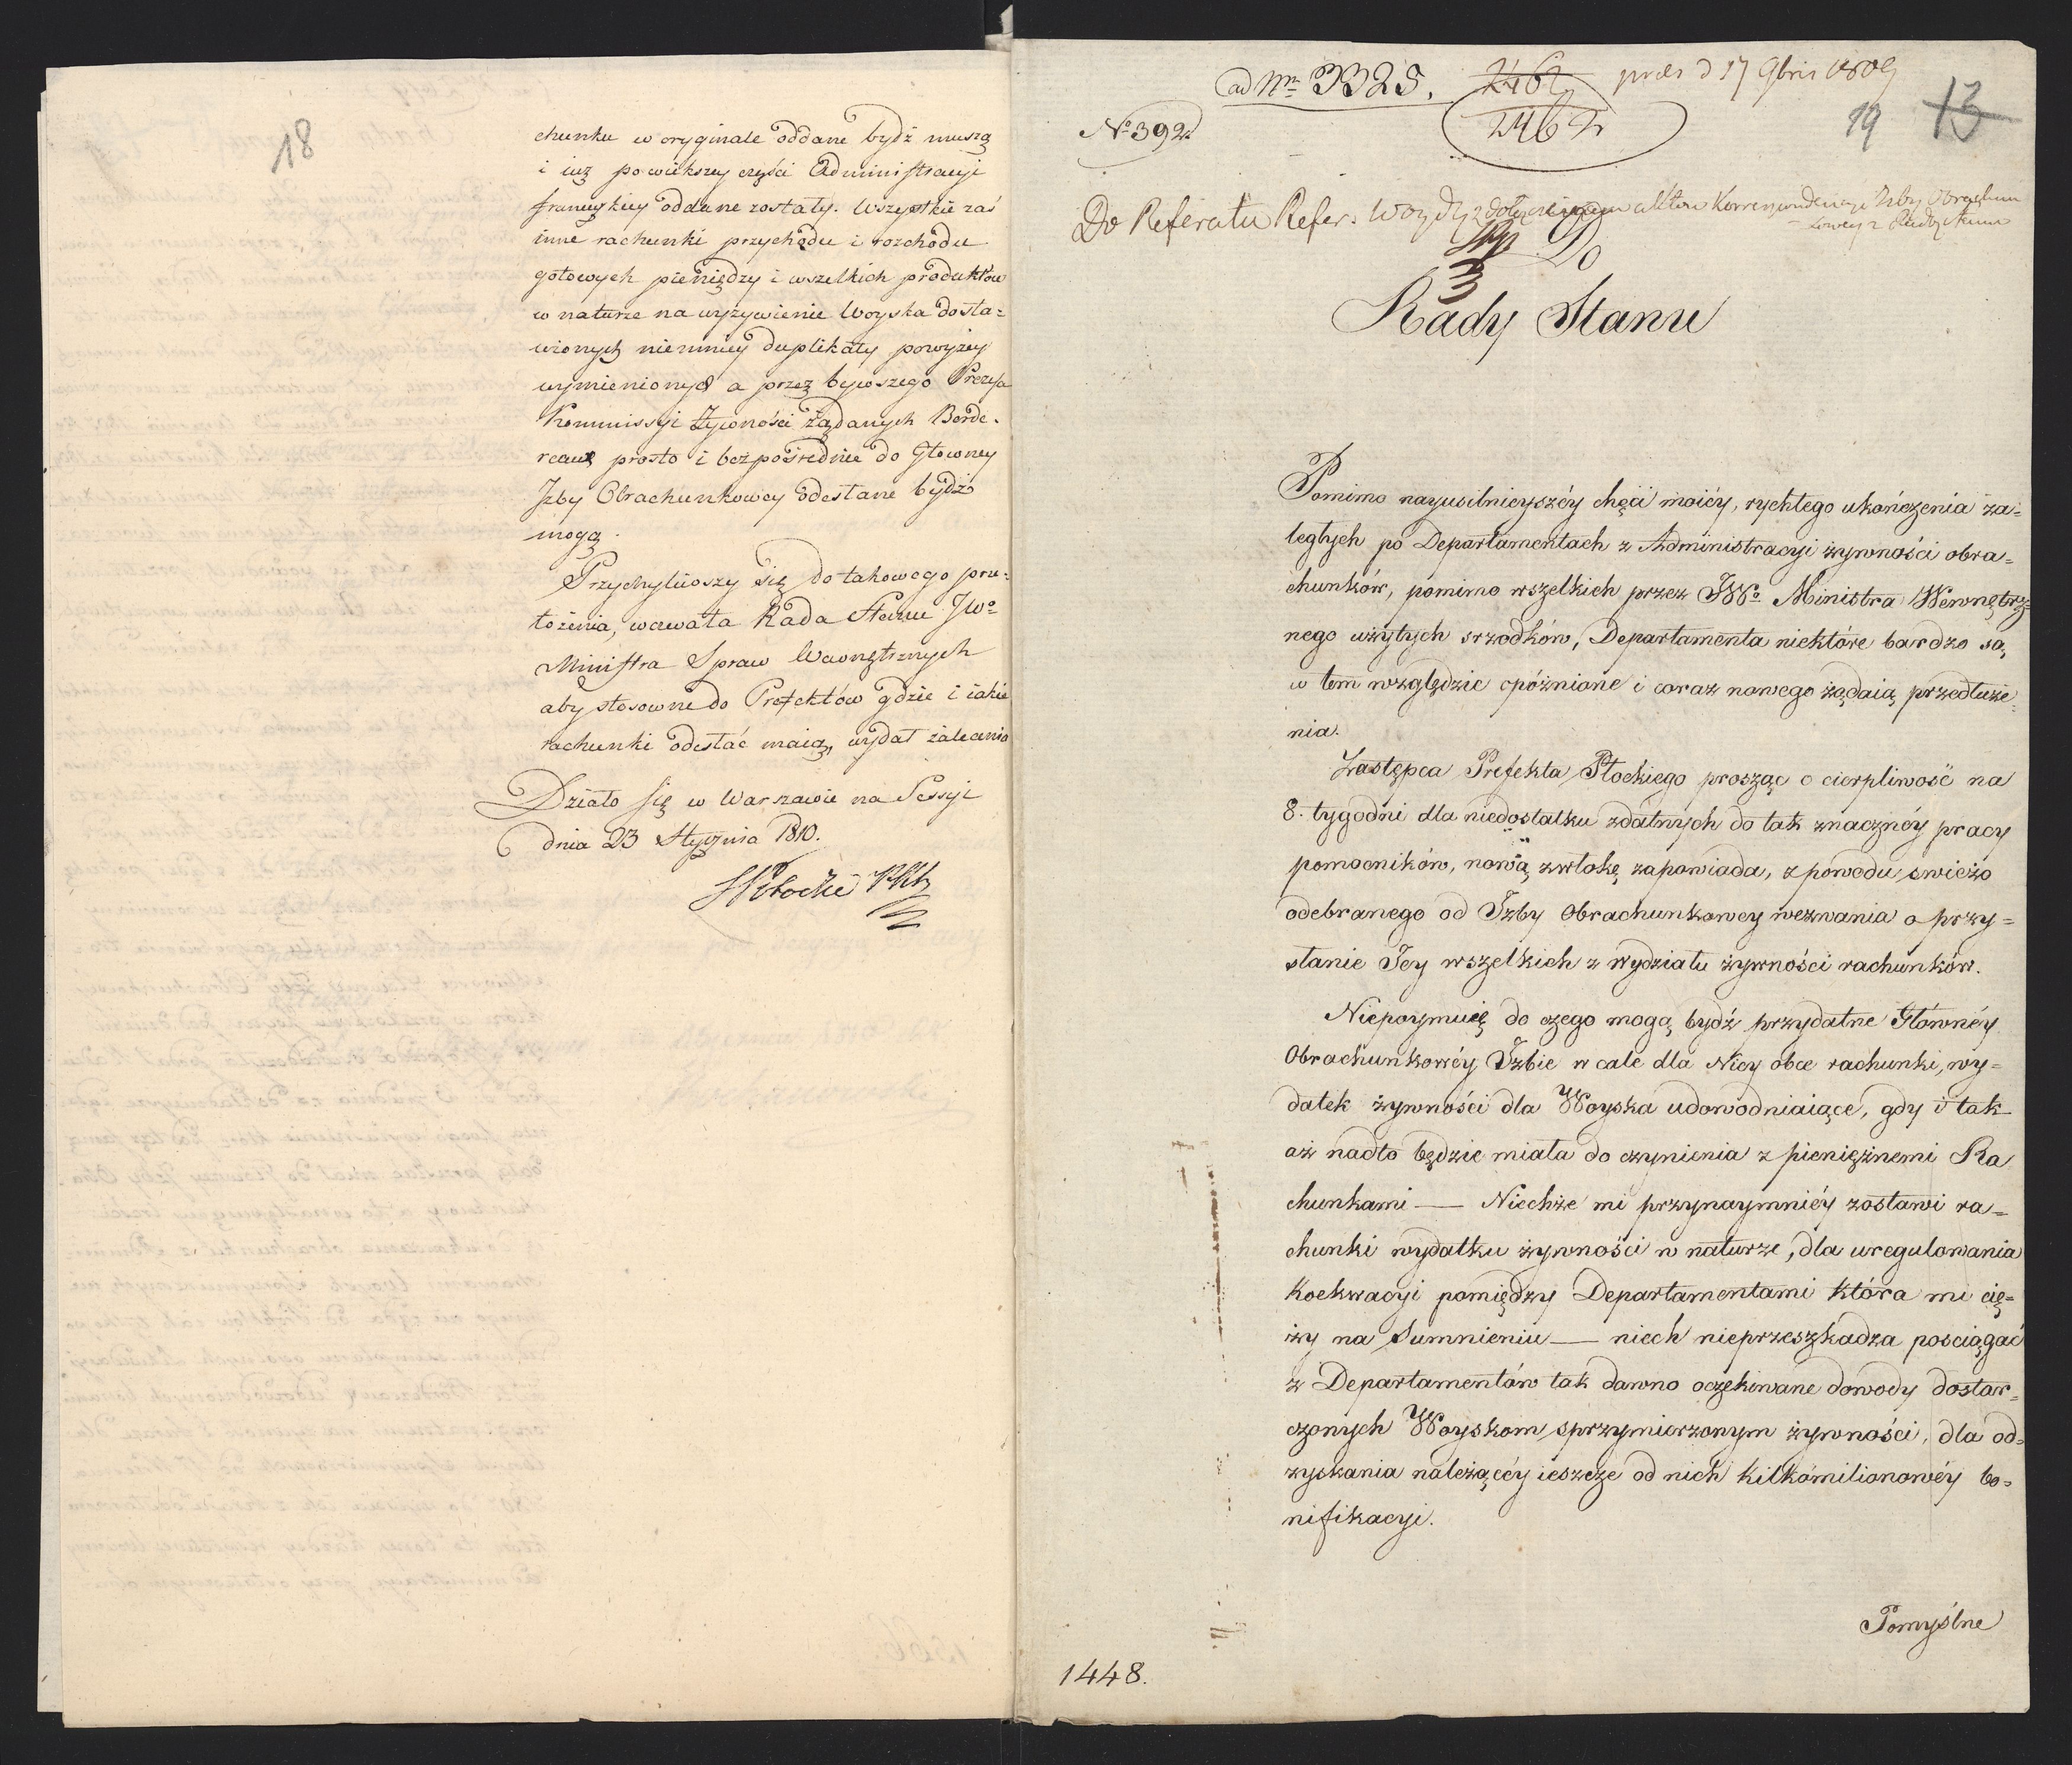 18
chunku w oryginale oddane bydź muszą
i iuż powiększey części Administracyi
francuzkiey oddane zostały. Wszystkie zaś
inne rachunki przychodu i rozchodu
gotowych pieniędzy i wszelkich produktów
w naturze na wyżywienie Woyska dosta=
wionych niemniey duplikaty powyżey
wymienionych a przez bywszego Prezesa
Kommissyi Żywności Żądanych Borde-
reaux prosto i bezpośrednie do Głowney
Izby Obrachunkowey odesłane bydź
mogą.
Przychyliwszy się do takowego prze=
łożenia, wzywała Rada Stanu JWo
Ministra Spraw Wewnętrznych
aby stosowne do Prefektów gdzie i iakie
rachunki odesłać maią, wydał zalecenia
Działo się w Warszawie na Sessyi
dnia 23 Stycznia 1810.
ad Nr 3325. 2462 præs d 17 9bris 1809
No 392
2462
19 13
Do Referatu Refer. Korrespondencyi Izby Obrachun
Do
Rady Stanu
Pomimo nayusilnieyszéy chęci moiéy, rychłego ukończenia za=
ległych po Departamentach z Administracyi żywności obra=
chunków, pomimo wszelkich przez JWo Ministra Wewnętrz=
nego użytych srzodków, Departamenta niektóre bardzo są,
w tem względzie opóźnione i coraz nowego żądaią przedłuże=
nia.
Zastępca Prefekta Płockiego prosząc o cierpliwość na
8. tygodni dla niedostatku zdatnych do tak znacznéy pracy
pomocników, nową zwłokę zapowiada, z powodu swieżo
odebranego od Izby Obrachunkowey wezwania o przy=
słanie Jey wszelkich z wydziału żywności rachunków.
Niepoymuię do czego mogą bydź przydatne Głównéy
Obrachunkowéy Izbie w cale dla Niey obce rachunki, wy=
datek żywności dla Woyska udowodniaiące, gdy i tak
aż nadto będzie miała do czynienia z pieniężnemi Ra
chunkami — Niechże mi przynaymniéy zostawi ra=
chunki wydatku żywności w naturze, dla uregulowania
Koekwacyi pomiędzy Departamentami która mi cię=
ży na Sumnieniu — niech nieprzeszkadza pościągać
z Departamentów tak dawno oczekiwane dowody dostar=
czonych Woyskom sprzymierzonym żywności, dla od=
zyskania należącéy ieszcze od nich kilkómilionowéy bo=
nifikacyi.
Pomyślne
1448.